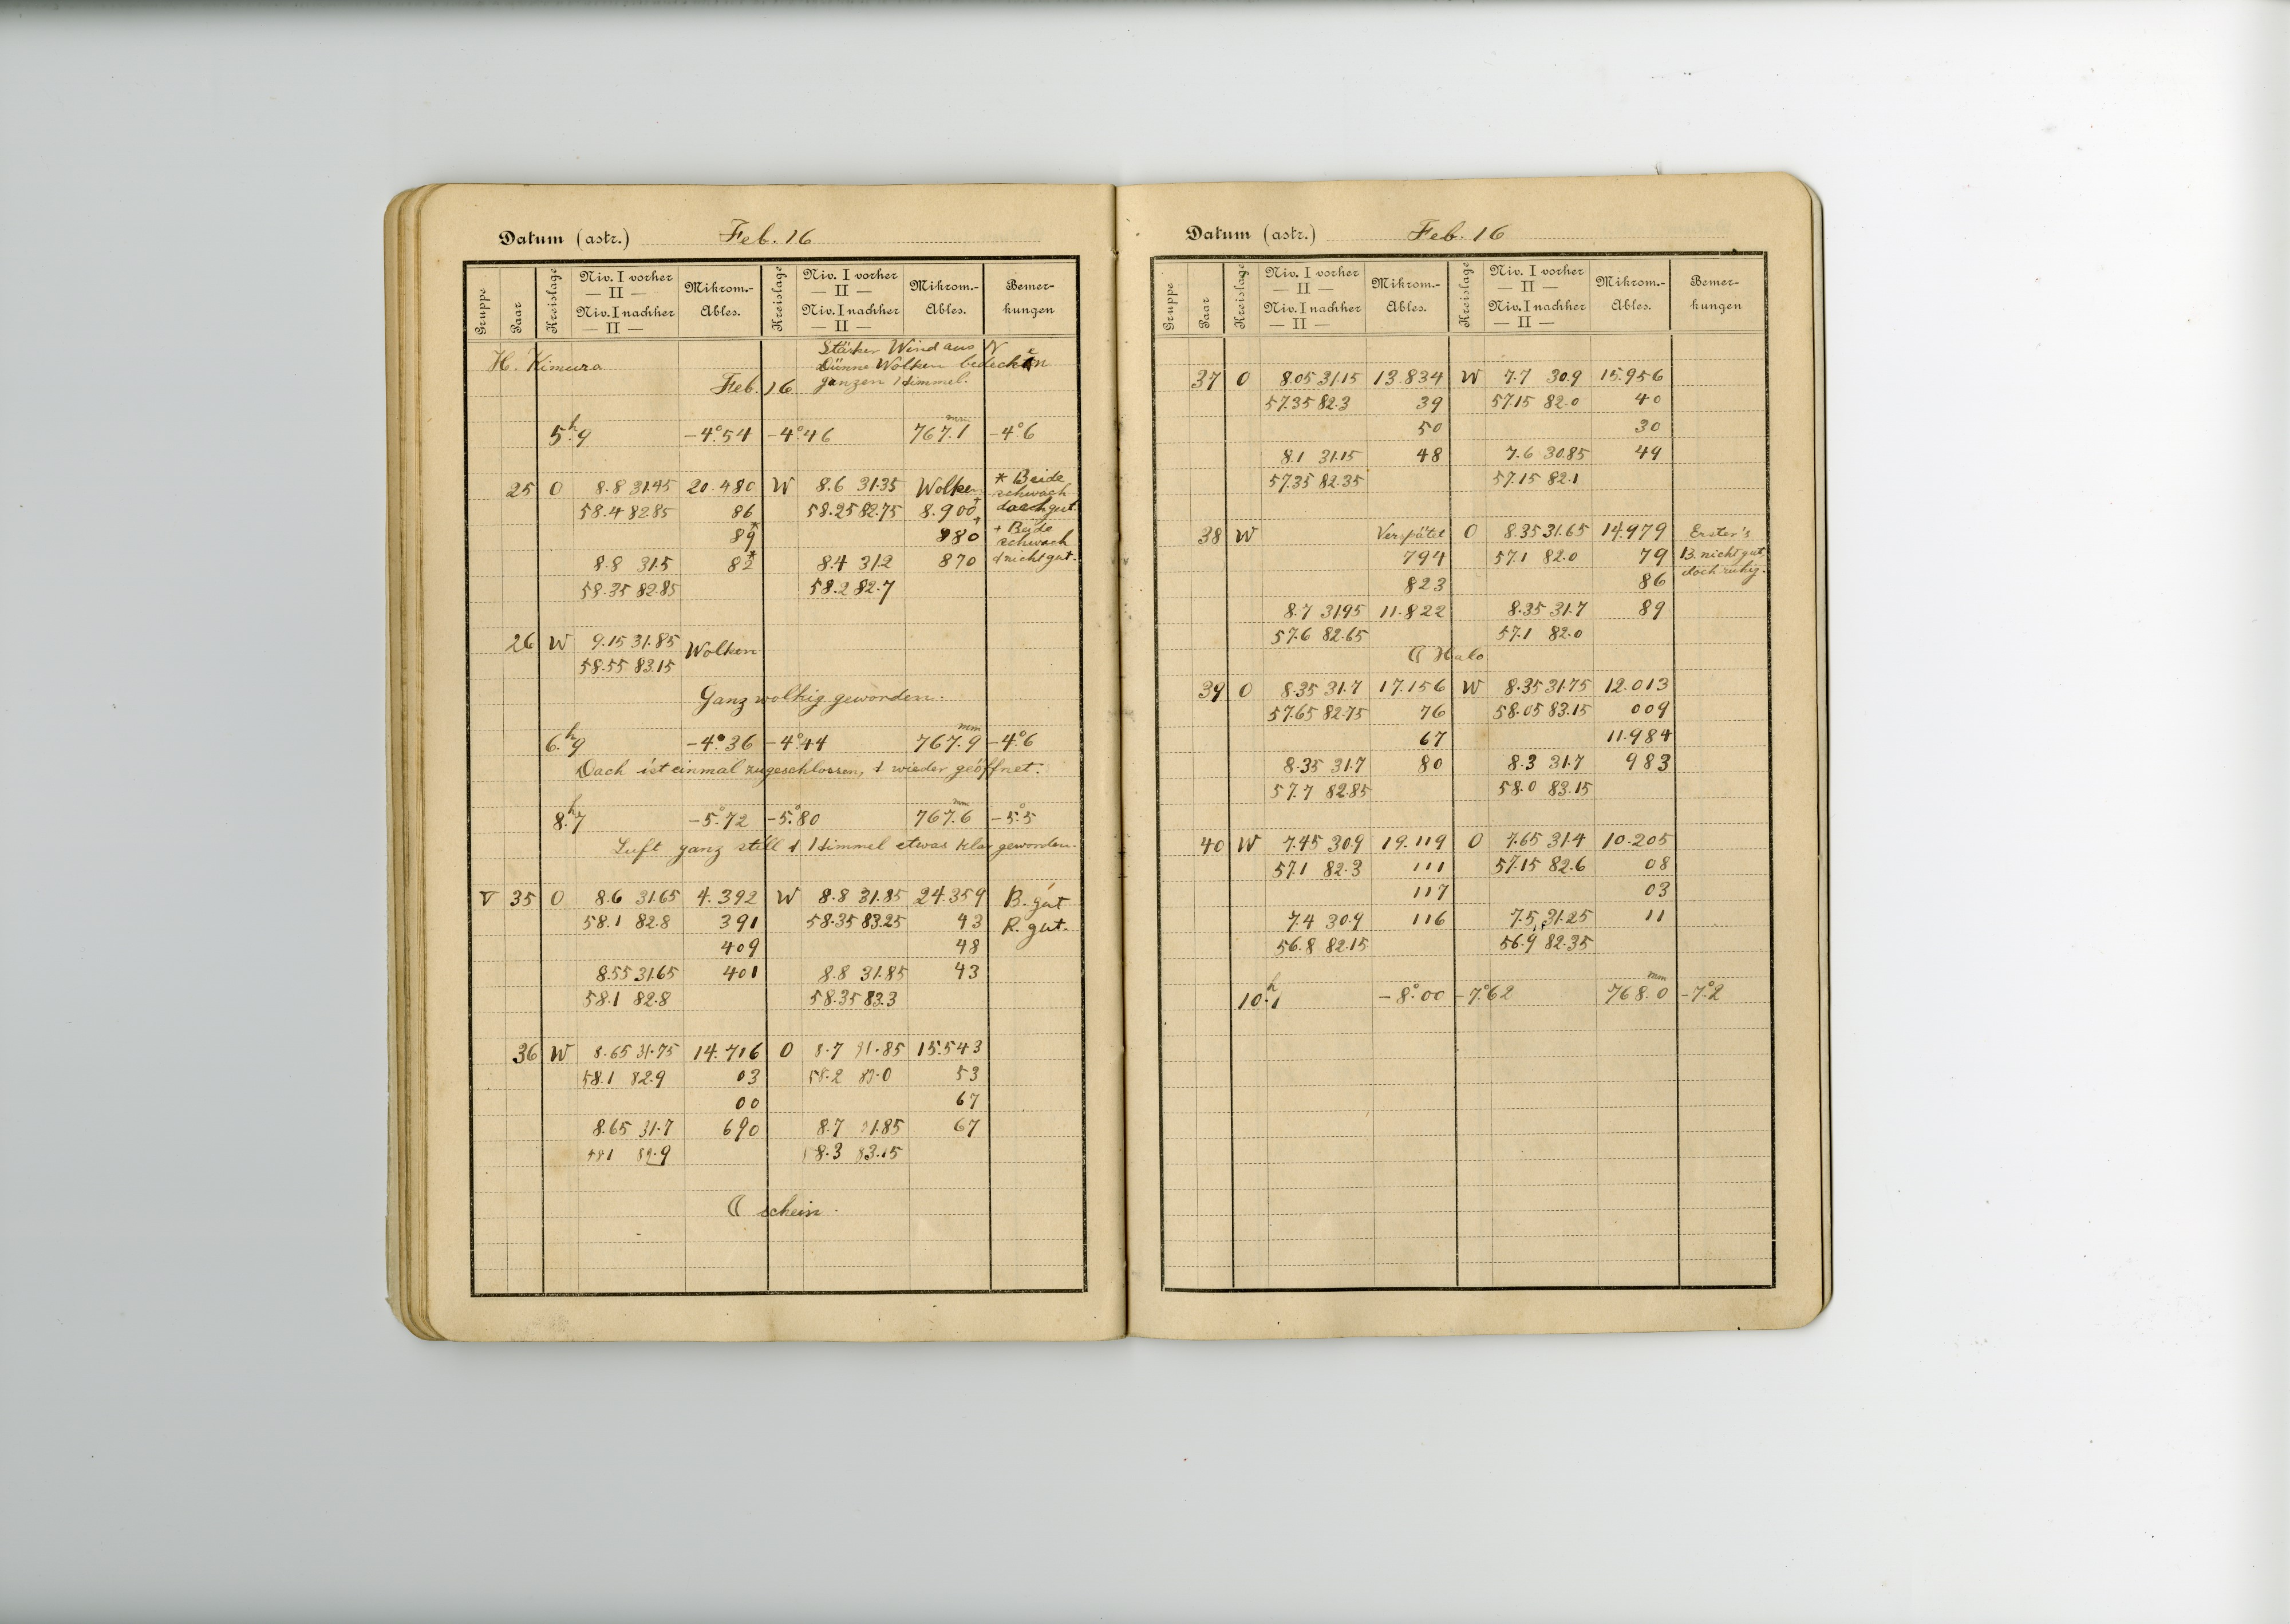 Datum (astr.) Feb. 16
Gruppe Paar Kreislage Niv. I vorher Mikrom.- Kreislage Niv. I vorher Mikrom.- Bemer-
— II — — II —
Niv. I nachher Ables. Niv. I nachher Ables. kungen
— II — — II —
Stärker Wind aus N
H. Kimura Dünne Wolken bedecken
Feb. 16 ganzen Himmel.
5.h9 -4°.54 -4°.46 767.1 mm -4°.6
25 O 8.8 31.45 20.480 W 8.6 31.35 Wolken * Beide
schwach
58.4 82.85 86 58.25 82.75 8.900+ doch gut
89* 880+ + Beide
schwach
8.8 31.5 82* 8.4 31.2 870 & nicht gut.
58.35 82.85 58.2 82.7
26 W 9.15 31.85 Wolken
58.55 83.15
Ganz wolkig geworden.
6.h9 -4°.36 -4°.44 767.9 mm -4°.6
Dach ist einmal zugeschlossen, & wieder geöffnet.
8.h7 -5°.72 -5°.80 767.6 mm -5°.5
Luft ganz still & Himmel etwas klar geworden.
V 35 O 8.6 31.65 4.392 W 8.8 31.85 24.359 B. gut
58.1 82.8 391 58.35 83.25 43 R. gut.
409 48
8.55 31.65 401 8.8 31.85 43
58.1 82.8 58.35 83.3
36 W 8.65 31.75 14.716 O 8.7 31.85 15.543
58.1 82.9 03 58.2 83.0 53
00 67
8.65 31.7 690 8.7 31.85 67
58.1 82.9 58.3 83.15
☾ schein.
Datum (astr.) Feb. 16
Gruppe Paar Kreislage Niv. I vorher Mikrom.- Kreislage Niv. I vorher Mikrom.- Bemer-
— II — — II —
Niv. I nachher Ables. Niv. I nachher Ables. kungen
— II — — II —
37 O 8.05 31.15 13.834 W 7.7 30.9 15.956
57.35 82.3 39 57.15 82.0 40
50 30
8.1 31.15 48 7.6 30.85 49
57.35 82.35 57.15 82.1
38 W Verspätet O 8.35 31.65 14.979 Erster's
794 57.1 82.0 79 B. nicht gut,
823 86 doch ruhig.
8.7 31.95 11.822 8.35 31.7 89
57.6 82.65 57.1 82.0
☾ Halo
39 O 8.35 31.7 17.156 W 8.35 31.75 12.013
57.65 82.75 76 58.05 83.15 009
67 11.984
8.35 31.7 80 8.3 31.7 983
57.7 82.85 58.0 83.15
40 W 7.45 30.9 19.119 O 7.65 31.4 10.205
57.1 82.3 111 57.15 82.6 08
117 03
7.4 30.9 116 7.5 31.25 11
56.8 82.15 56.9 82.35
10.h1 -8°.00 -7°.62 768.0 mm -7°.2